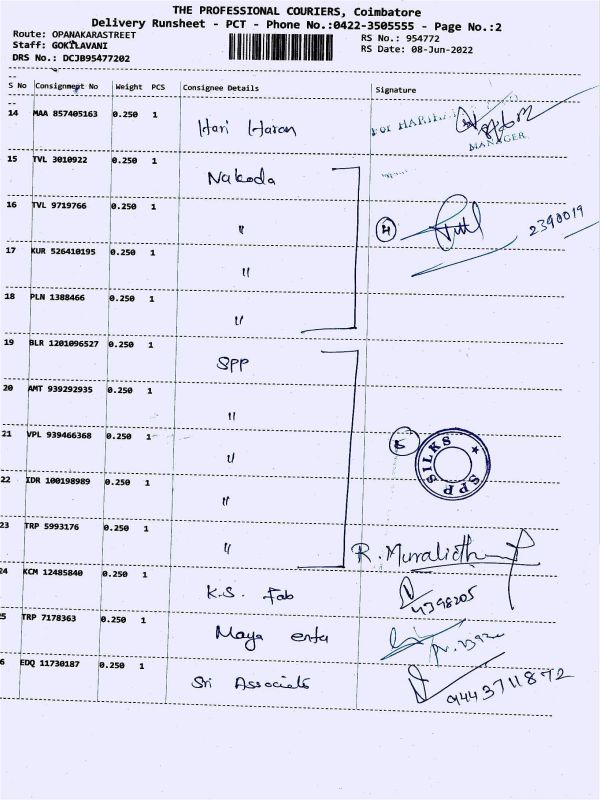 THE PROFESSIONAL COURIERS, Coimbatore
Delivery Runsheet - PCT - Phone No.:0422-3505555 - Page No.:2
Route: OPANAKARASTREET
RS No.: 954772
Staff: GOKILAVANI
RS Date: 08-Jun-2022
DRS No.: DCJB95477202
S No Consignment No Weight PCS Consignee Details Signature
14 MAA 857405163 0.250 1 Hari Haran For HARI
MANAGER
15 TVL 3010922 0.250 1 Nakoda
16 TVL 9719766 0.250 1 " 4 2390019
17 KUR 526410195 0.250 1 "
18 PLN 1388466 0.250 1 "
19 BLR 1201096527 0.250 1 SPP
20 AMT 939292935 0.250 1 "
21 VPL 939466368 0.250 1 " 5 SPP SILKS
22 IDR 100198989 0.250 1 "
23 TRP 5993176 0.250 1 " R. Muralidh
24 KCM 12485840 0.250 1 K.S. Fab 4398205
25 TRP 7178363 0.250 1 Maya enta
26 EDQ 11730187 0.250 1 Sri Associats 9443711872